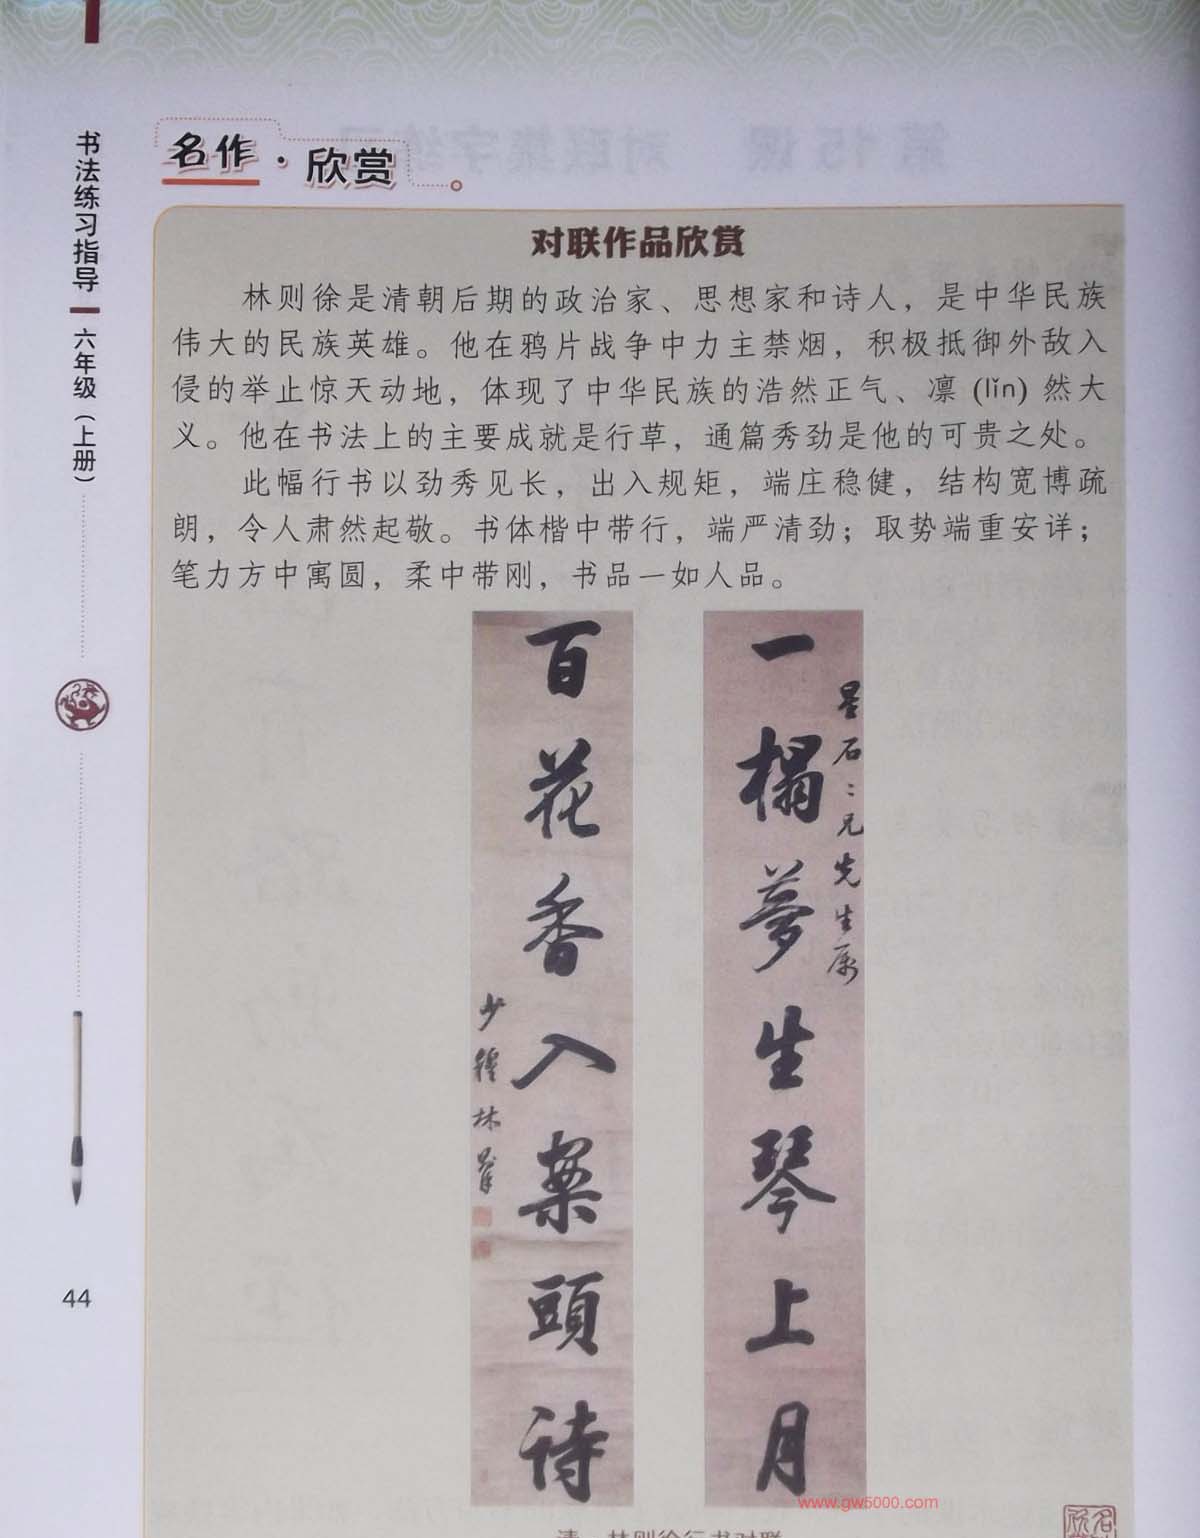 书法练习指导 六年级（上册）
44
名作·欣赏
对联作品欣赏
林则徐是清朝后期的政治家、思想家和诗人，是中华民族
伟大的民族英雄。他在鸦片战争中力主禁烟，积极抵御外敌入
侵的举止惊天动地，体现了中华民族的浩然正气、凛(lǐn)然大
义。他在书法上的主要成就是行草，通篇秀劲是他的可贵之处。
此幅行书以劲秀见长，出入规矩，端庄稳健，结构宽博疏
朗，令人肃然起敬。书体楷中带行，端严清劲；取势端重安详；
笔力方中寓圆，柔中带刚，书品一如人品。
星石二兄先生属
一榻梦生琴上月
百花香入案頭诗
少穆林
www.gw5000.com
清 林则徐行书对联